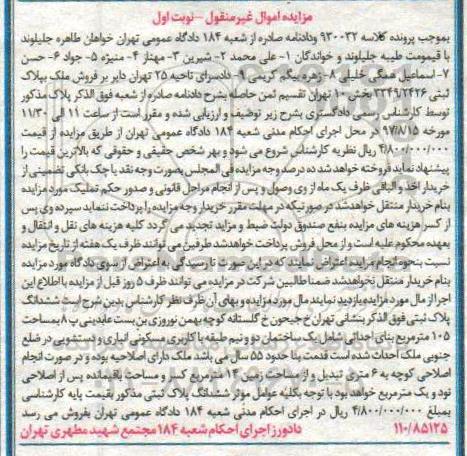 مزایده اموال غیرمنقول - نوبت اول
بموجب پرونده کلاسه ۹۳۰۰۳۲ ودادنامه صادره از شعبه ۱۸۴ دادگاه عمومی تهران خواهان طاهره جلیلوند
با قیمومت طیبه جلیلوند و خواندگان ۱- علی محمد ۲- شیرین ۳- مهناز ۴- منیژه ۵- جواد ۶- حسن
۷- اسماعیل همگی خلیلی ۸- زهره بیگم کریمی ۹- دادسرای ناحیه ۲۵ تهران دایر بر فروش ملک بپلاک
ثبتی ۲۳۴۹/۲۴۲۶ بخش ۱۰ تهران تقسیم ثمن حاصله بشرح دادنامه صادره از شعبه فوق الذکر پلاک مذکور
توسط کارشناس رسمی دادگستری بشرح زیر توصیف و ارزیابی شده و مقرر است از ساعت ۱۱ الی ۱۱/۳۰
مورخه ۹۷/۸/۱۵ در محل اجرای احکام مدنی شعبه ۱۸۴ دادگاه عمومی تهران از طریق مزایده از قیمت
۴/۸۰۰/۰۰۰/۰۰۰ ریال نظریه کارشناس شروع می شود و بهر شخص حقیقی و حقوقی که بالاترین قیمت را
پیشنهاد نماید فروخته خواهد شد ده درصد وجه مزایده فی المجلس بصورت وجه نقد یا چک بانکی تضمینی از
خریدار اخذ و الباقی ظرف یک ماه از وی وصول و پس از انجام مراحل قانونی و صدور حکم تملیک مورد مزایده
بنام خریدار منتقل خواهد شد در صورتیکه در مهلت مقرر خریدار وجه مزایده را پرداخت ننماید سپرده وی پس
از کسر هزینه های مزایده بنفع صندوق دولت ضبط و مزاید تجدید می گردد کلیه هزینه های نقل و انتقال و
بعهده محکوم علیه است و از محل فروش پرداخت خواهد شد طرفین می توانند ظرف یک هفته از تاریخ مزایده
نسبت بنحوه انجام مزایده اعتراض نمایند که در این صورت تا رسیدگی به اعتراض از سوی دادگاه مورد مزایده
بنام خریدار منتقل نخواهد شد ضمنا طالبین شرکت در مزایده می توانند ظرف ۵ روز قبل از مزایده با اطلاع این
اجرا از مال مورد مزایده بازدید نمایند مال مورد مزایده و بهای آن طرف نظر کارشناس بدین شرح است ششدانگ
پلاک ثبتی فوق الذکر بنشانی تهران خ جیحون خ گلستانه کوچه بهمن نوروزی بن بست عابدینی پ ۸ بمساحت
۱۰۵ مترمربع بنای احداثی شامل یک ساختمان دو و نیم طبقه با کاربری مسکونی انباری و دستشویی در ضلع
جنوبی ملک احداث شده است قدمت بنا حدود ۵۵ سال می باشد ملک دارای اصلاحیه بوده و در صورت انجام
اصلاحی کوچه به ۶ متری تبدیل و از مساحت زمین ۱۴ مترمربع کسر و مساحت باقیمانده پس از اصلاحی
نود و یک مترمربع خواهد بود با توجه بکلیه عوامل موثر ششدانگ پلاک ثبتی مذکور بقیمت پایه کارشناسی
بمبلغ ۴/۸۰۰/۰۰۰/۰۰۰ ریال در اجرای احکام مدنی شعبه ۱۸۴ دادگاه عمومی تهران بفروش می رسد
۱۱۰/۸۵۱۲۵ دادورز اجرای احکام شعبه ۱۸۴ مجتمع شهید مطهری تهران